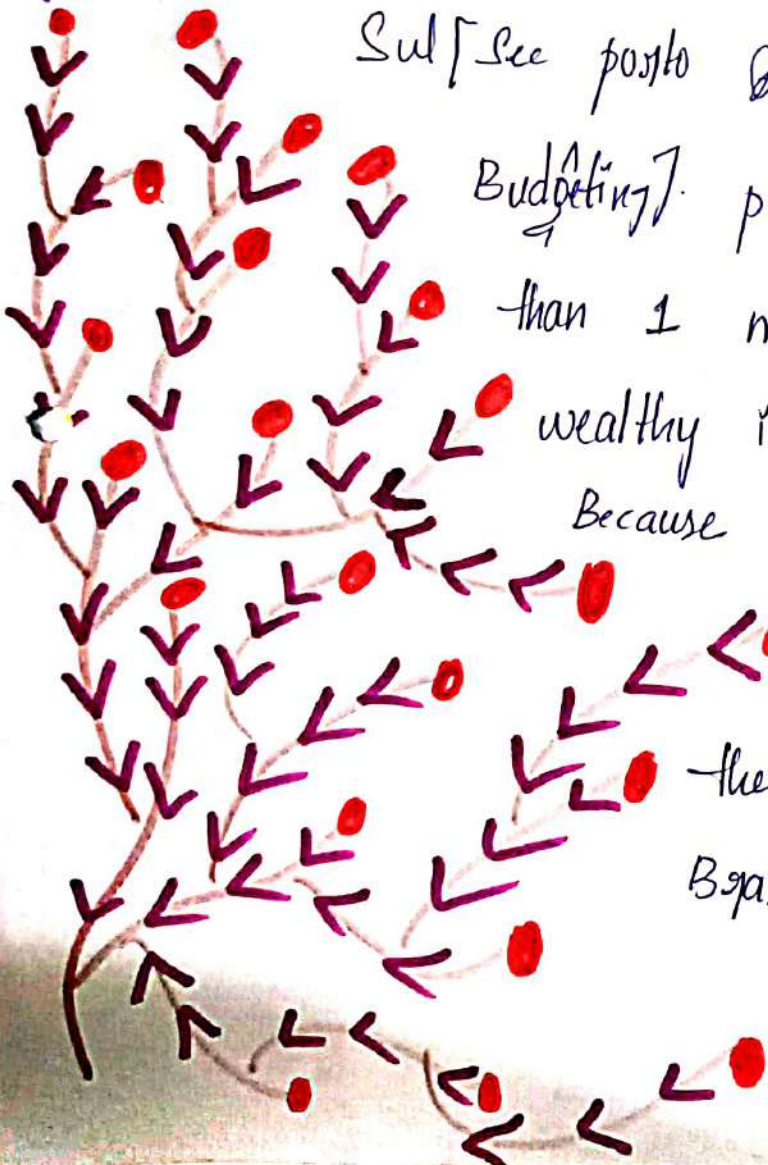 Sul [See posto
Budgeting]. p
than 1 n
wealthy i
Because
the
Bra